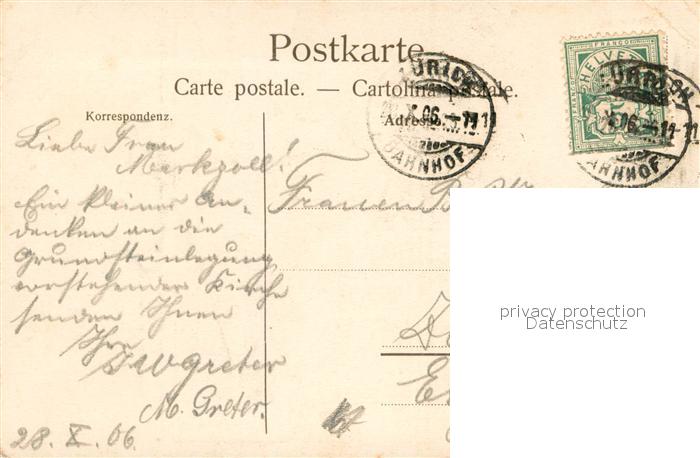 Postkarte
Carte postale. — Cartolina postale.
Korrespondenz.
Adresse.
ZÜRICH
X 06.–11
BAHNHOF
FRANCO
HELVETIA
ZÜRICH
X 06.–11
BAHNHOF
Liebe Frau
Markzoll!
Ein kleiner An-
denken an die
Grundsteinlegung
vorstehender Kirche
senden Ihnen
Ihre
Greter
M. Greter.
28. X. 06.
Frauen
privacy protection
Datenschutz